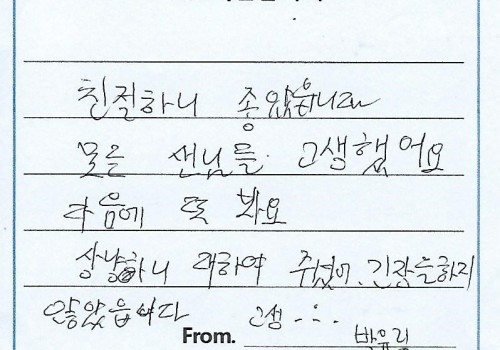 친절하니 좋았읍니다
모든 선님들 고생했어요
다음에 또 봐요
상냥하니 대하여 주셨어. 긴장을하지
않았읍니다 고생...
From. 박유리